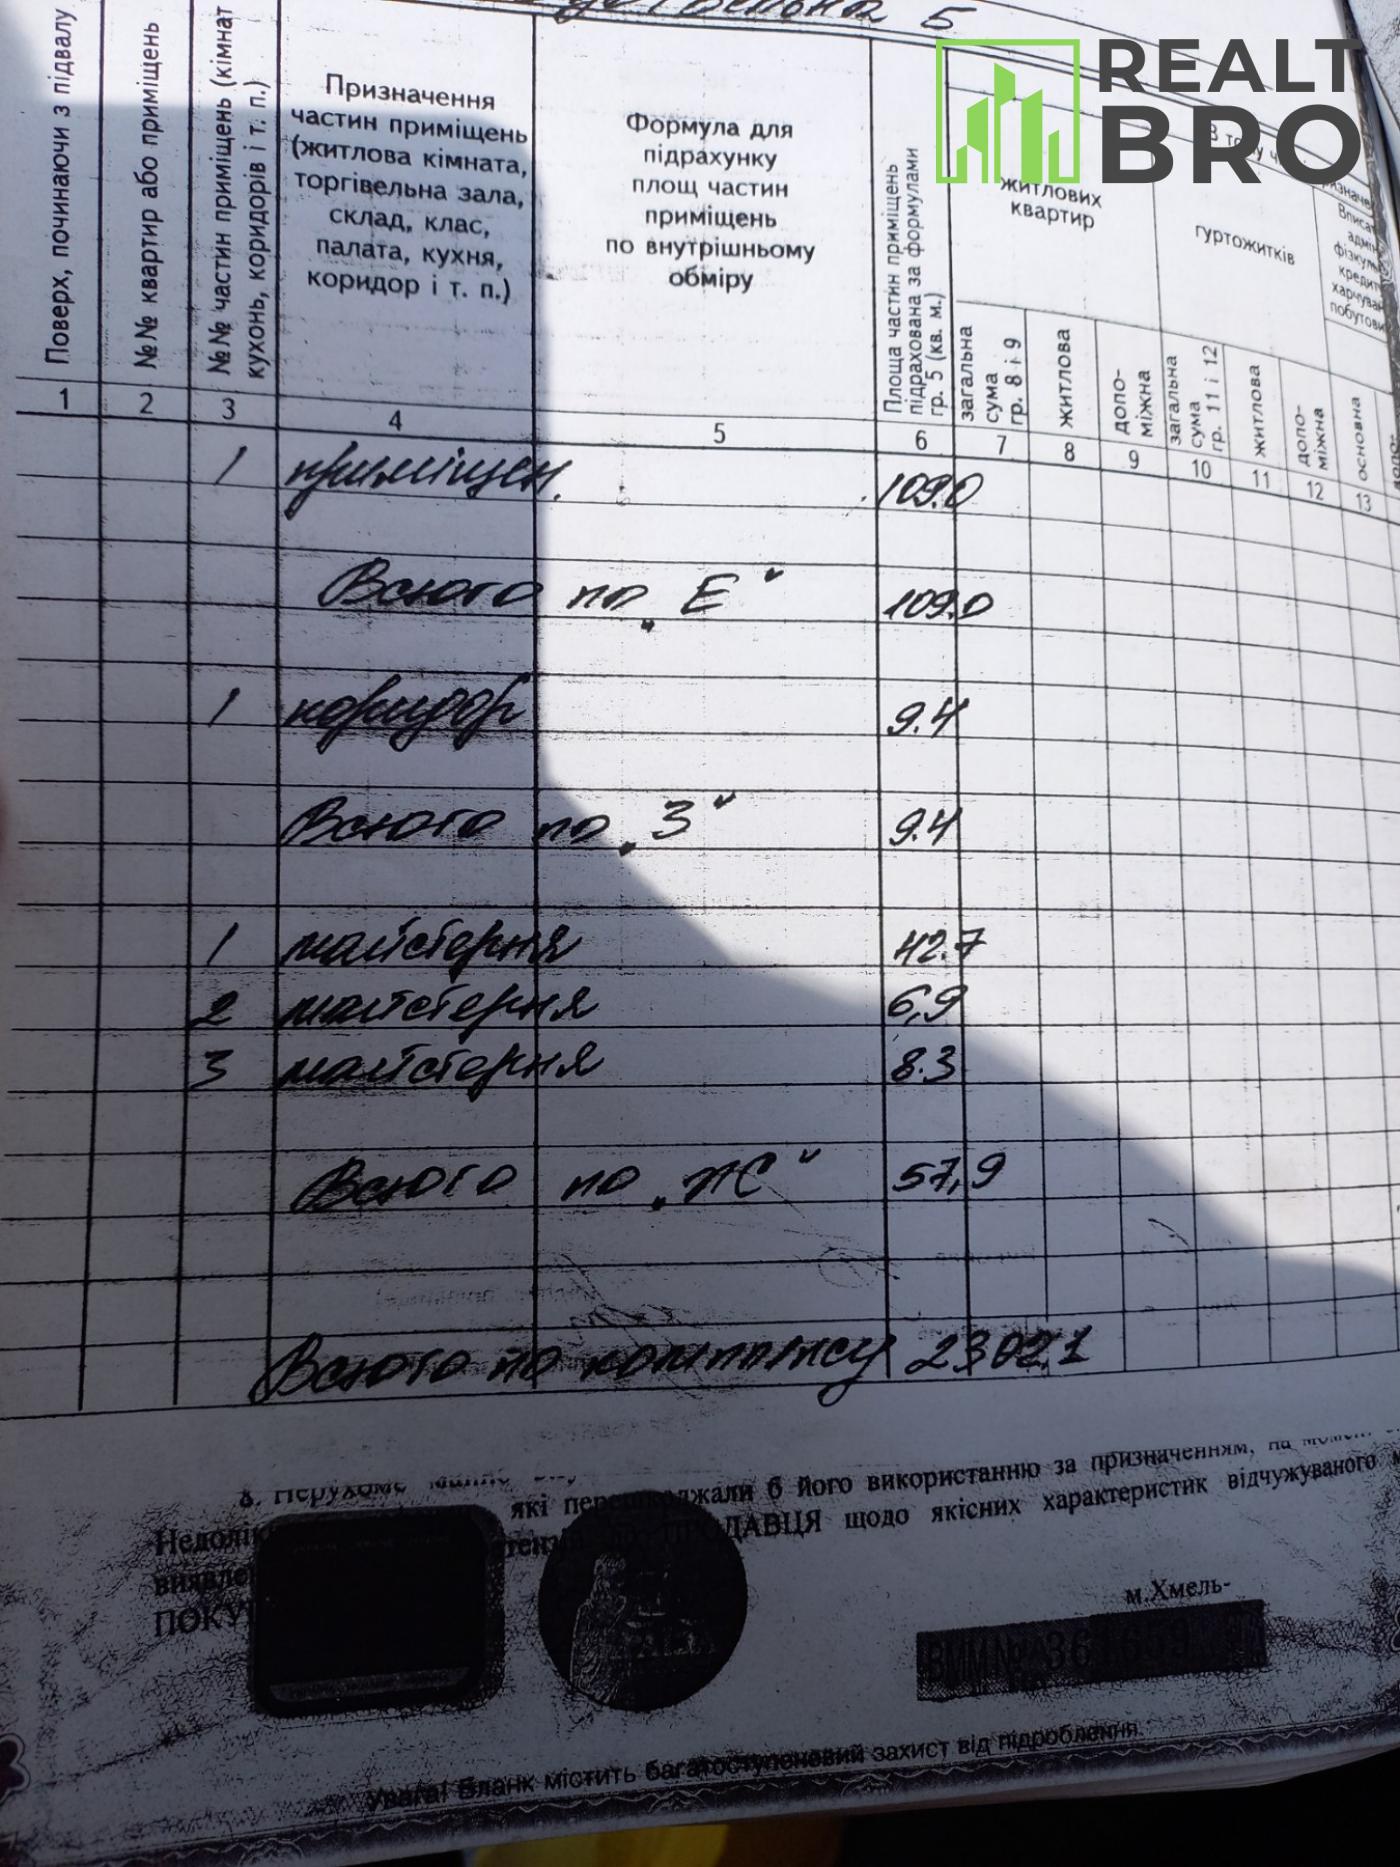 REALT
BRO
5
Поверх, починаючи з підвалу
№№ квартир або приміщень
№№ частин приміщень (кімнат
кухонь, коридорів і т. п.)
Призначення
частин приміщень
(житлова кімната,
торгівельна зала,
склад, клас,
палата, кухня,
коридор і т. п.)
Формула для
підрахунку
площ частин
приміщень
по внутрішньому
обміру
Площа частин приміщень
підрахована за формулами
гр. 5 (кв. м.)
житлових
квартир
гуртожитків
загальна
сума
гр. 8 і 9
житлова
допо-
міжна
загальна
сума
гр. 11 і 12
житлова
допо-
міжна
основна
1 2 3 4 5 6 7 8 9 10 11 12 13
1 приміщен. 109.0
Всього по „Е" 109.0
1 коридор 9.4
Всього по „З" 9.4
1 майстерня 42.7
2 майстерня 6,9
3 майстерня 8.3
Всього по „Ж" 57,9
Всього по комплексу 2302.1
8. Нерухоме майно
які перешкоджали б його використанню за призначенням, на
ПРОДАВЦЯ щодо якісних характеристик відчужуваного
м.Хмель-
ВММ №
Увага! Бланк містить багатоступеневий захист від підроблення.